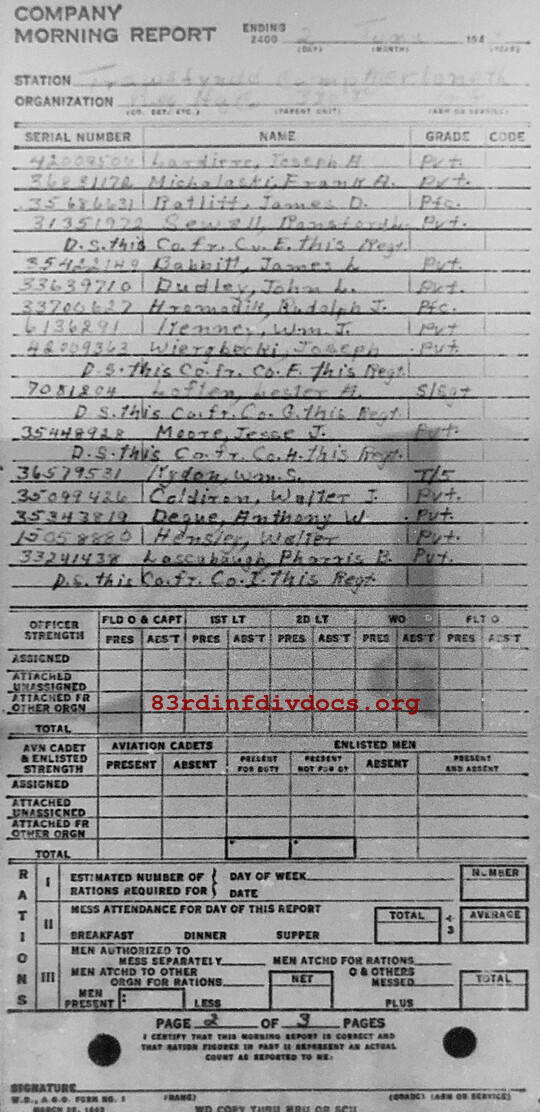 COMPANY
MORNING REPORT ENDING 2400 2 June 194
(DAY) (MONTH) (YEAR)
STATION Trawsfynydd Camp Merioneth
ORGANIZATION
(CO. DET. ETC.) (PARENT UNIT) (ARM OR SERVICE)
SERIAL NUMBER NAME GRADE CODE
42009506 Lardiere, Joseph A Pvt.
36831172 Michalaski, Frank A. Pvt.
35686631 Ratliff, James D. Pfc.
31351972 Sewell, Ransford L. Pvt.
D.S. this Co. fr. Co. E. this Regt.
35422149 Babbitt, James L Pvt.
33639710 Dudley, John L. Pvt.
33700627 Hromadik, Rudolph J. Pfc.
6136291 Kenney, Wm. J. Pvt
42009363 Wiergbecki, Joseph Pvt.
D.S. this Co. fr. Co. F. this Regt.
7081204 Loften, Lester A. S/Sgt
D.S. this Co. fr. Co. G. this Regt.
35448928 Moore, Jesse J. Pvt.
D.S. this Co. fr. Co. H. this Regt.
36579531 Wm. S. T/5
35099426 Coldiron, Walter J. Pvt.
35343819 Deque, Anthony W. Pvt.
15058880 Hensley, Walter Pvt.
33241438 Lascabaugh, Pharris B. Pvt.
D.S. this Co. fr. Co. I. this Regt.
OFFICER STRENGTH FLD O & CAPT 1ST LT 2D LT WO FLT O
PRES ABS'T PRES ABS'T PRES ABS'T PRES ABS'T PRES ABS'T
ASSIGNED
ATTACHED UNASSIGNED
ATTACHED FR OTHER ORGN
83rdinfdivdocs.org
TOTAL
AVN CADET & ENLISTED STRENGTH AVIATION CADETS ENLISTED MEN
PRESENT ABSENT PRESENT FOR DUTY PRESENT NOT FOR DY ABSENT PRESENT AND ABSENT
ASSIGNED
ATTACHED UNASSIGNED
ATTACHED FR OTHER ORGN
TOTAL
RATIONS
I ESTIMATED NUMBER OF RATIONS REQUIRED FOR DAY OF WEEK DATE NUMBER
II MESS ATTENDANCE FOR DAY OF THIS REPORT TOTAL ÷ 3 AVERAGE
BREAKFAST DINNER SUPPER
III MEN AUTHORIZED TO MESS SEPARATELY MEN ATCHD FOR RATIONS
MEN ATCHD TO OTHER ORGN FOR RATIONS NET O & OTHERS MESSED TOTAL
MEN PRESENT LESS PLUS
PAGE 2 OF 3 PAGES
I CERTIFY THAT THIS MORNING REPORT IS CORRECT AND
THAT RATION FIGURES IN PART II REPRESENT AN ACTUAL
COUNT AS REPORTED TO ME:
SIGNATURE
W.D., A.G.O. FORM NO. 1 (NAME) (GRADE) (ARM OR SERVICE)
MARCH 25, 1943 WD COPY THRU MRU OR SCU